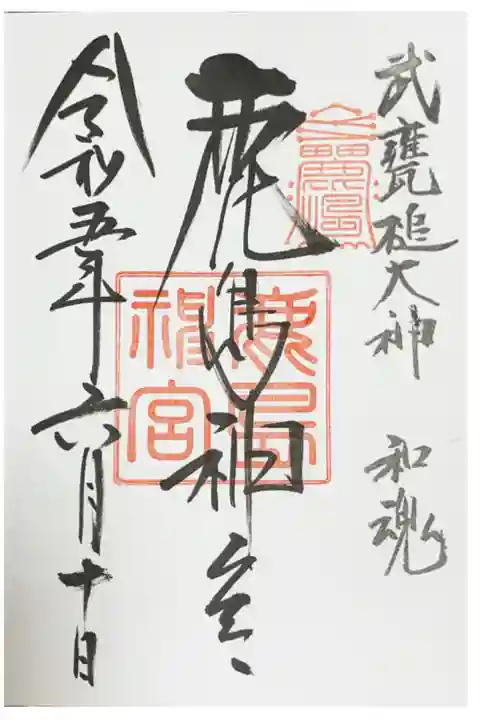 武甕槌大神　和魂
鹿島神宮
鹿島
神宮
令和五年六月十日